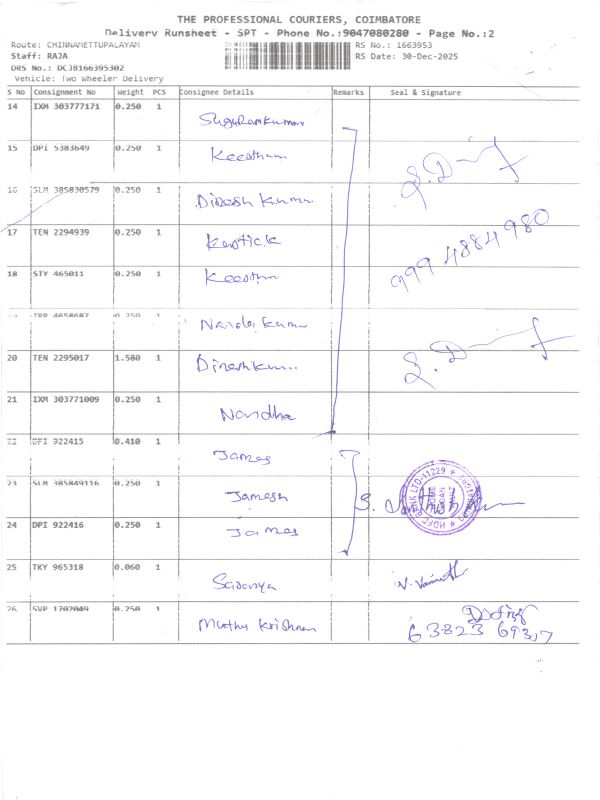 THE PROFESSIONAL COURIERS, COIMBATORE
Delivery Runsheet - SPT - Phone No.:9047080280 - Page No.:2
Route: CHINNAMETTUPALAYAM RS No.: 1663953
Staff: RAJA RS Date: 30-Dec-2025
DRS No.: DCJB166395302
Vehicle: Two Wheeler Delivery
S No Consignment No Weight PCS Consignee Details Remarks Seal & Signature
14 IXM 303777171 0.250 1 Suguramkumar
15 DPI 5383649 0.250 1 Keerthana
16 SLM 385830579 0.250 1 Dinesh Kumar
17 TEN 2294939 0.250 1 Karthick
999 4884 980
18 STY 465011 0.250 1 Keerthna
4658687 0.250 1 Nanda Kumar
20 TEN 2295017 1.580 1 Dineshkumar
21 IXM 303771009 0.250 1 Nandha
22 DPI 922415 0.410 1 James
23 SLM 385849116 0.250 1 Jamesh
HDFC BANK LTD-11229
24 DPI 922416 0.250 1 James
25 TKY 965318 0.060 1 Saranya
26 SVP 1702049 0.250 1 Muthu Krishnan